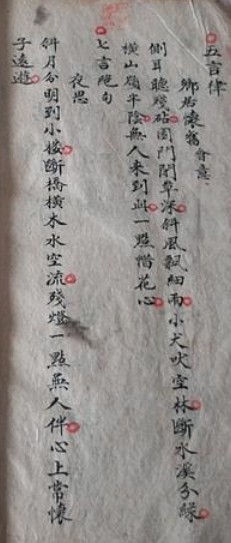 五言律
鄉居懷舊會意
側耳聽殘砧園門閉草深斜風飄細雨小犬吠空林斷水溪分綠
橫山嶺半陰無人來到此一點惜花心
七言絕句
夜思
斜月分明到小樓斷橋橫木水空流殘燈一點無人伴心上常懷
子遠遊